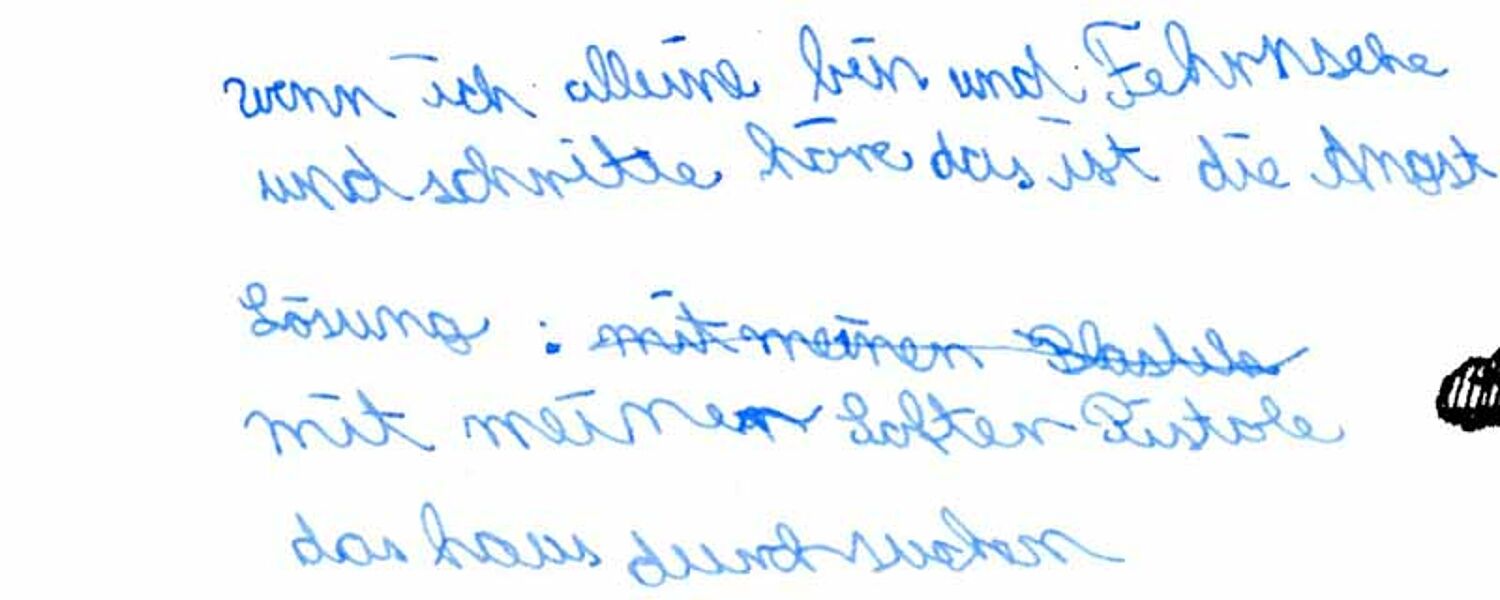 wenn ich alleine bin und Fehrnsehe
und schritte höre das ist die Angst
Lösung : mit meinen
mit meinen Softer Pistole
das haus durchsuchen